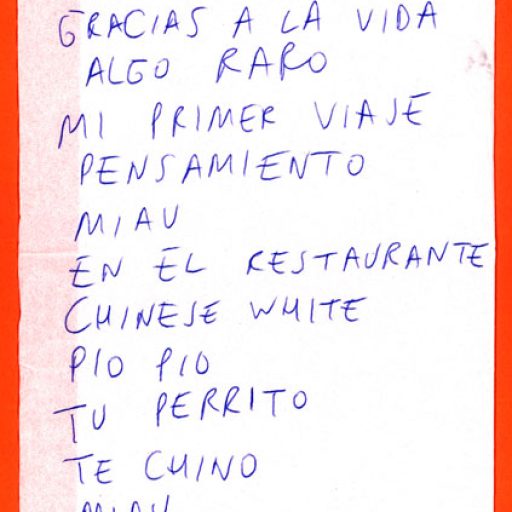 GRACIAS A LA VIDA
ALGO RARO
MI PRIMER VIAJE
PENSAMIENTO
MIAU
EN EL RESTAURANTE
CHINESE WHITE
PIO PIO
TU PERRITO
TE CHINO
MIAU